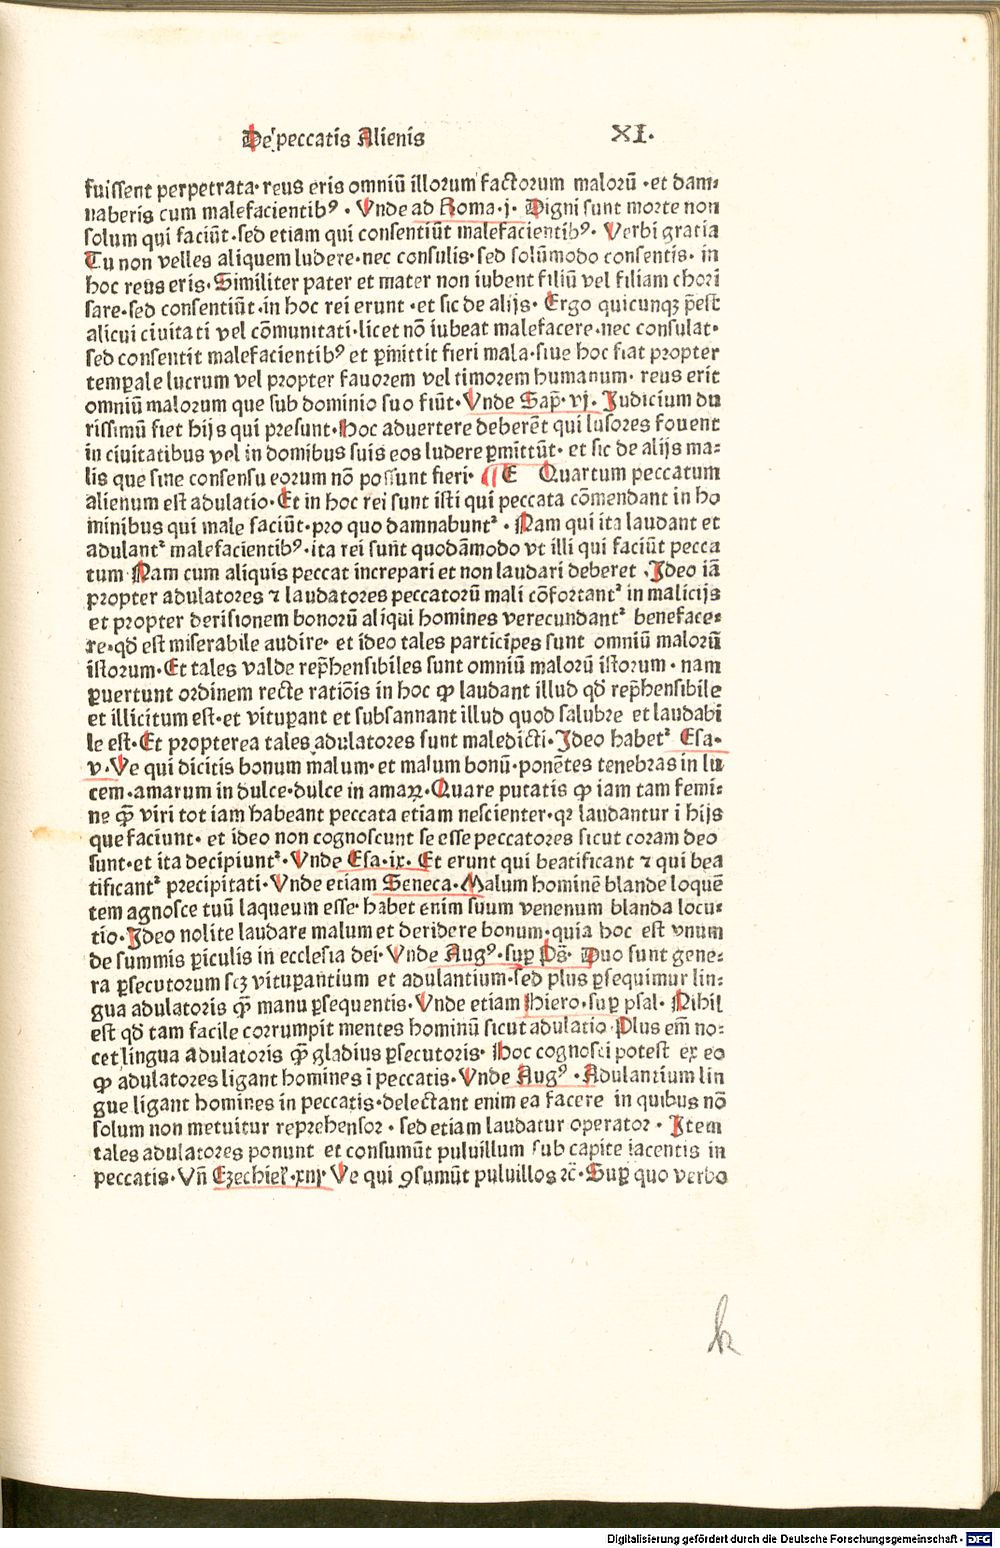 De peccatis Alienis XI.
fuissent perpetrata· reus eris omniū illorum factorum malorū ·et dam⸗
naberis cum malefacientibꝰ · Vnde ad Roma·j· Digni sunt morte non
solum qui faciūt·sed etiam qui consentiūt malefacientibꝰ· Verbi gratia
Tu non velles aliquem ludere·nec consulis·sed solūmodo consentis· in
hoc reus eris·Similiter pater et mater non iubent filiū vel filiam chori
sare·sed consentiūt·in hoc rei erunt ·et sic de alijs· Ergo quicunqꝫ p̄est
alicui ciuitati vel cōmunitati·licet nō iubeat malefacere·nec consulat·
sed consentit malefacientibꝰ et ꝑmittit fieri mala·siue hoc fiat propter
temꝑale lucrum vel propter fauorem vel timorem humanum· reus erit
omniū malorum que sub dominio suo fiūt·Vnde Sap̄· vj· Judicium du
rissimū fiet hijs qui presunt·Hoc aduertere deberēt qui lusores fouent
in ciuitatibus vel in domibus suis eos ludere ꝑmittūt· et sic de alijs ma⸗
lis que sine consensu eorum nō possunt fieri· ¶E Quartum peccatum
alienum est adulatio·Et in hoc rei sunt isti qui peccata cōmendant in ho
minibus qui male faciūt·pro quo damnabuntᷣ · Nam qui ita laudant et
adulantᷣ malefacientibꝰ·ita rei sunt quodāmodo vt illi qui faciūt pecca
tum·Nam cum aliquis peccat increpari et non laudari deberet ·Jdeo iā
propter adulatores ⁊ laudatores peccatorū mali cōfortantᷣ in malicijs
et propter derisionem bonorū aliqui homines verecundantᷣ beneface⸗
re·qđ est miserabile audire· et ideo tales participes sunt omniū malorū
istorum·Et tales valde rep̄hensibiles sunt omniū malorū istorum · nam
ꝑuertunt ordinem recte ratiōis in hoc ꝙ laudant illud qđ rep̄hensibile
et illicitum est·et vituꝑant et subsannant illud quod salubre et laudabi
le est·Et propterea tales adulatores sunt maledicti·Jdeo habetᷣ Esa·
v·Ve qui dicitis bonum malum·et malum bonū·ponētes tenebras in lu
cem·amarum in dulce·dulce in amaꝝ·Quare putatis ꝙ iam tam femi⸗
ne ꝙ̄ viri tot iam habeant peccata etiam nescienter·qꝛ laudantur ī hijs
que faciunt· et ideo non cognoscunt se esse peccatores sicut coram deo
sunt·et ita decipiuntᷣ·Vnde Esa·ix· Et erunt qui beatificant ⁊ qui bea
tificantᷣ precipitati·Vnde etiam Seneca·Malum hominē blande loquē
tem agnosce tuū laqueum esse·habet enim suum venenum blanda locu⸗
tio·Jdeo nolite laudare malum et deridere bonum·quia hoc est vnum
de summis ꝑiculis in ecclesia dei·Vnde Augꝰ·suꝑ Ps̄· Duo sunt gene⸗
ra ꝑsecutorum scꝫ vituꝑantium et adulantium·sed plus ꝑsequimur lin⸗
gua adulatoris ꝙ̄ manu ꝑsequentis·Vnde etiam Hiero·suꝑ psal· Nihil
est qđ tam facile corrumpit mentes hominū sicut adulatio·Plus em̄ no⸗
cet lingua adulatoris ꝙ̄ gladius ꝑsecutoris· Hoc cognosci potest ex eo
ꝙ adulatores ligant homines ī peccatis·Vnde Augꝰ ·Adulantium lin
gue ligant homines in peccatis·delectant enim ea facere in quibus nō
solum non metuitur reprehensor · sed etiam laudatur operator · Jtem
tales adulatores ponunt et consumūt puluillum sub capite iacentis in
peccatis·Vn̄ Ezechiel·xiij· Ve qui ꝯsumūt puluillos ⁊c̄·Suꝑ quo verbo
Digitalisierung gefördert durch die Deutsche Forschungsgemeinschaft · DFG